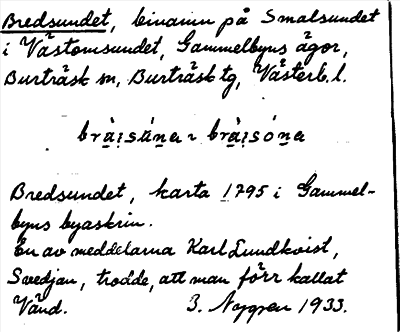 Bredsundet, binamn på Smalsundet
i Västomsundet, Gammelbyns ägor,
Burträsk sn, Burträsk tg, Västerb. l.
Bredsundet, karta 1795 i Gammel-
byns byaskrin.
En av meddelarna Karl Lundkvist,
Svedjan, trodde, att man förr kallat
Vänd. J. Nygren 1933.